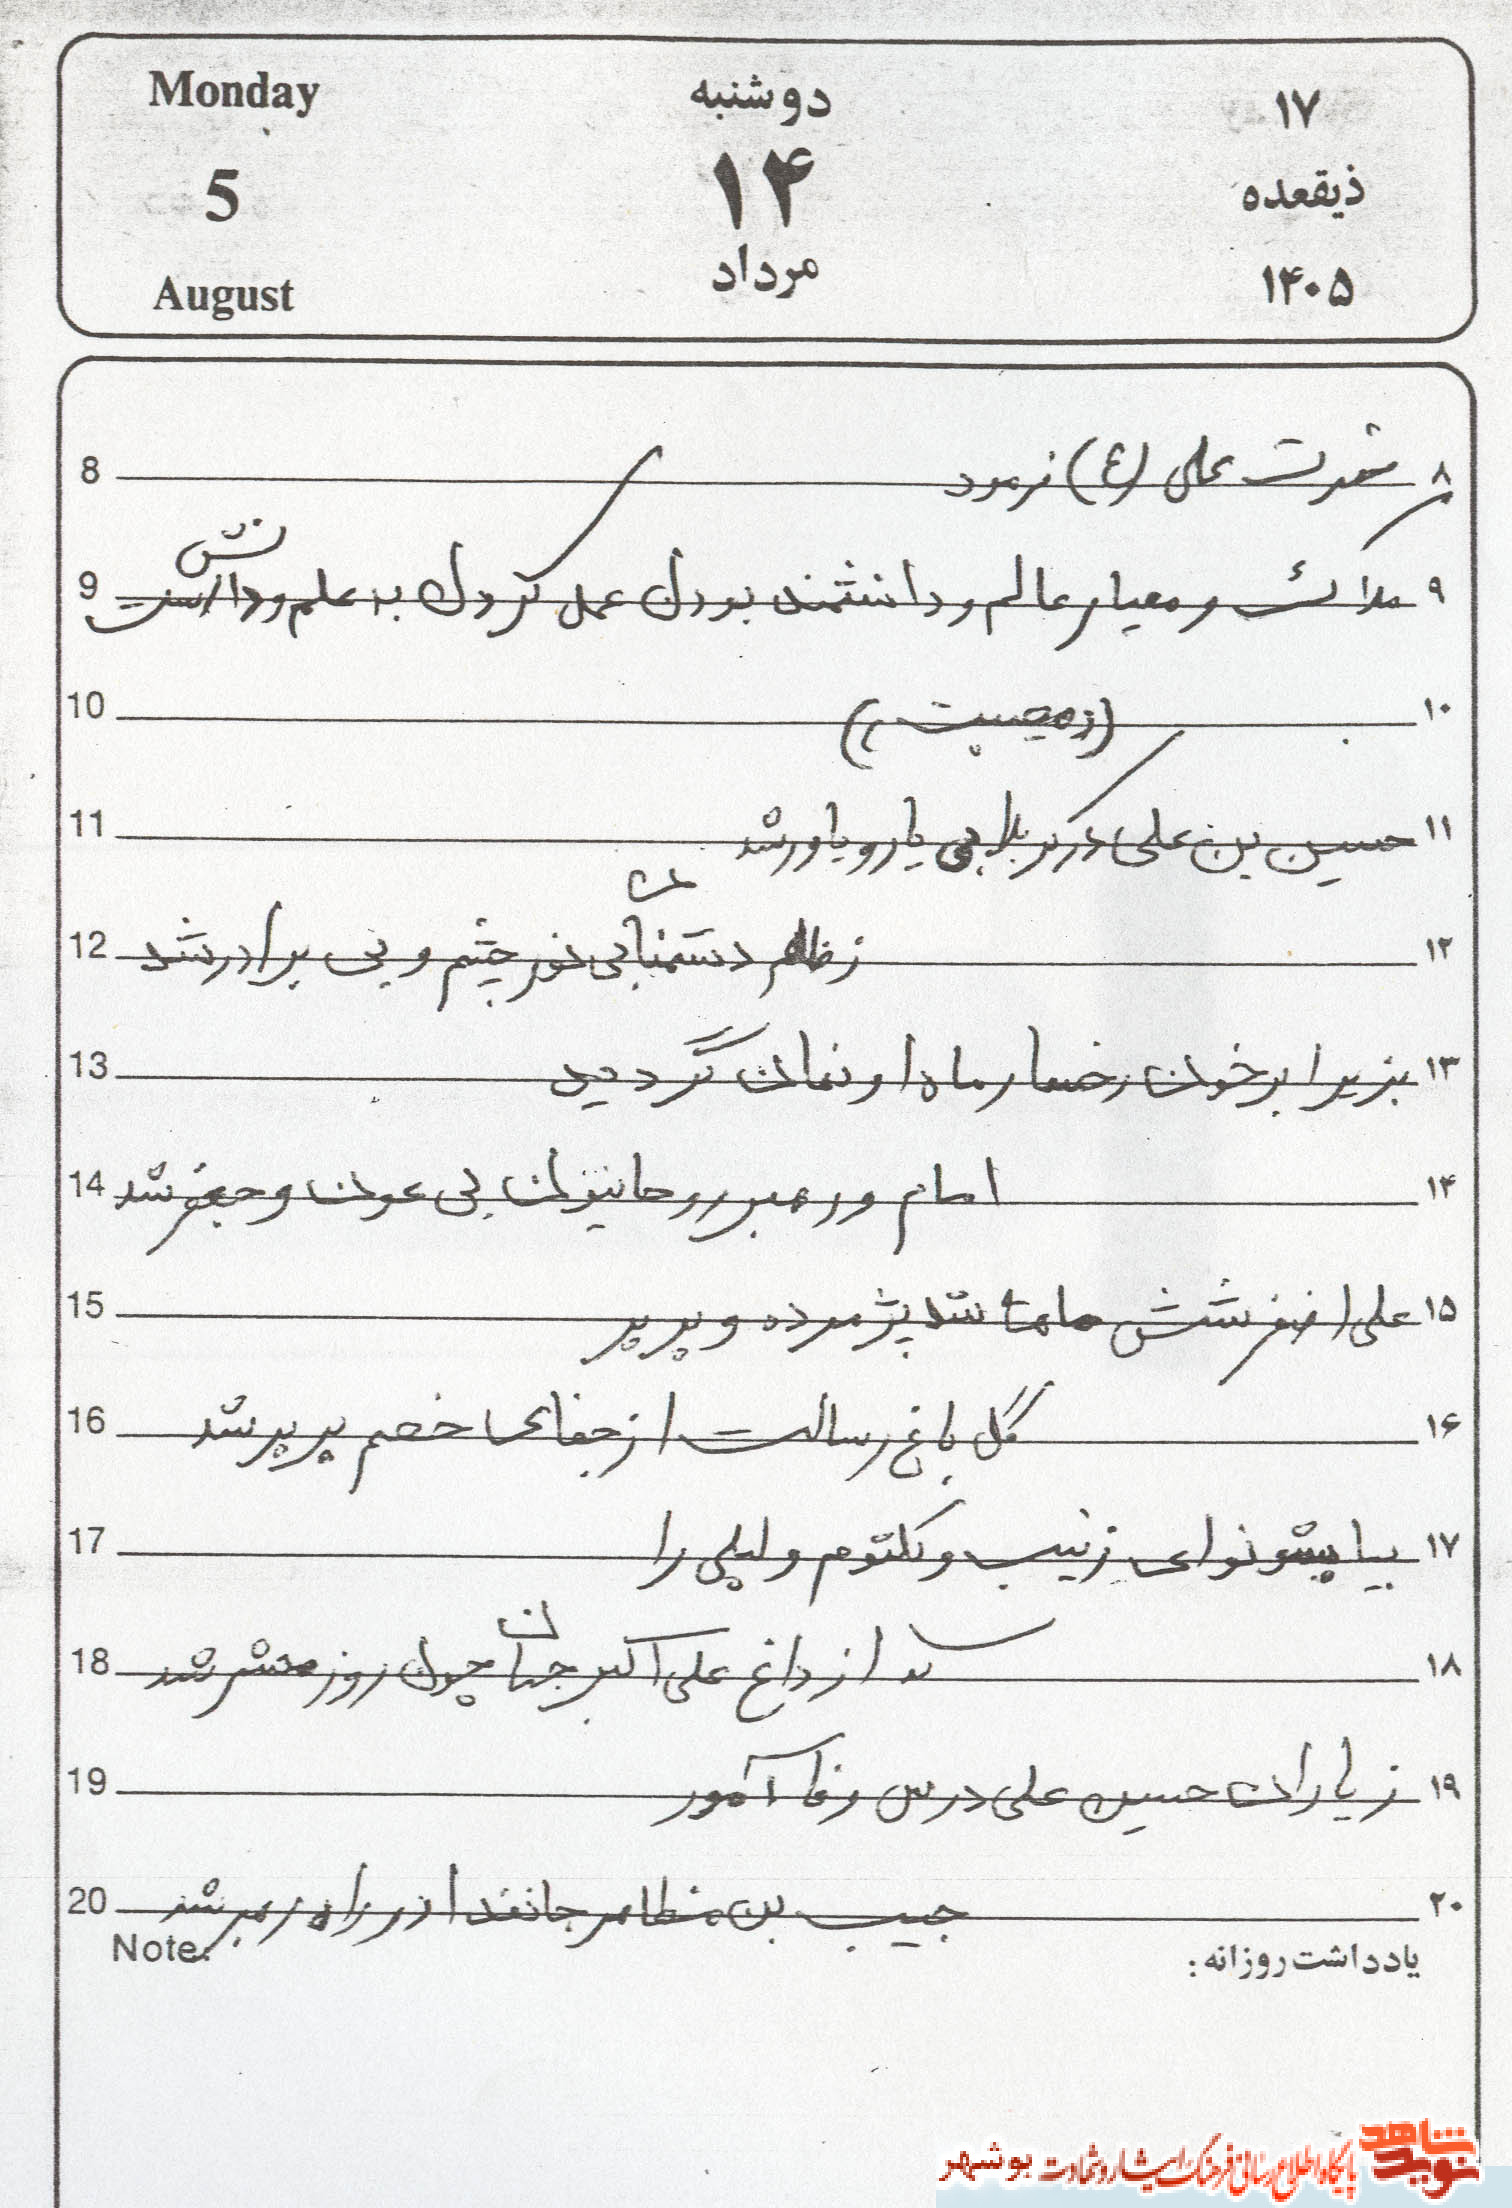 Monday دوشنبه ۱۷
5 ۱۴ ذیقعده
August مرداد ۱۴۰۵
8 حضرت علی (ع) فرمود ۸
9 ملاک و معیار عالم و دانشمند بودن عمل کردن به علم و دانش است ۹
10 (زمصیبت) ۱۰
11 حسین بن علی در کربلا بی یار و یاور شد ۱۱
12 ز ظلم دشمنان بی نور چشم و بی برادر شد ۱۲
13 بزیر ابر خون رخسار ماه او نهان گردید ۱۳
14 امام و رهبر روحانیون بی عون و جعفر شد ۱۴
15 علی اصغر شش ماهه شد پژمرده و پرپر ۱۵
16 گل باغ رسالت از جفای خصم پرپر شد ۱۶
17 بیا بشنو نوای زینب و کلثوم و لیلی را ۱۷
18 که از داغ علی اکبر جهان چون روز محشر شد ۱۸
19 ز یاران حسین علی درس وفا آموز ۱۹
20 حبیب بن مظاهر جانفدا در راه رهبر شد ۲۰
Note: یادداشت روزانه:
نوید شاهد
پایگاه اطلاع رسانی فرهنگ ایثار و شهادت بوشهر